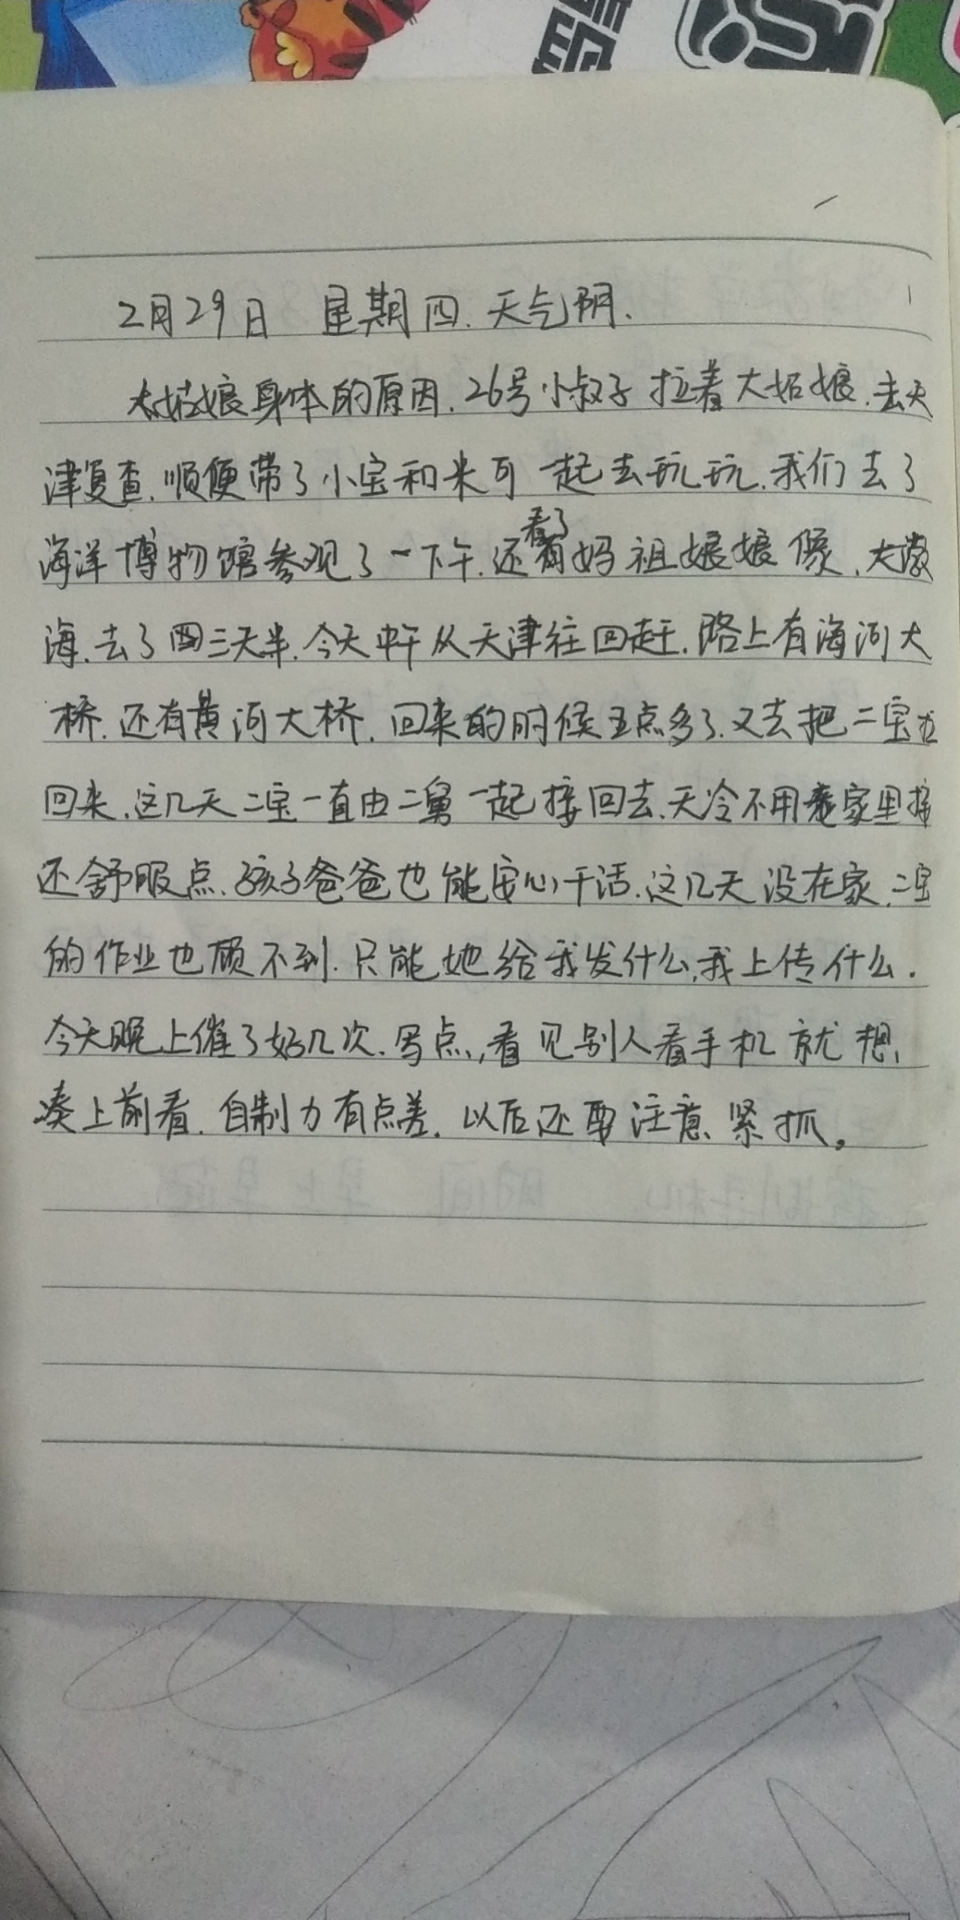 2月29日 星期四.天气阴.
大姑娘身体的原因.26号小叔子拉着大姑娘.去天
津复查.顺便带了小宝和米可一起去玩玩.我们去了
海洋博物馆参观了一下午.还看了妈祖娘娘像.大
海.去了三天半.今天中午从天津往回赶.路上有海河大
桥.还有黄河大桥.回来的时候五点多了.又去把二宝
回来.这几天二宝一直由二舅一起接回去.天冷不用家里接
还舒服点.孩子爸爸也能安心干活.这几天没在家.二宝
的作业也顾不到.只能她给我发什么,我上传什么.
今天晚上催了好几次.写点,看见别人看手机就想,
凑上前看.自制力有点差.以后还要注意紧抓。